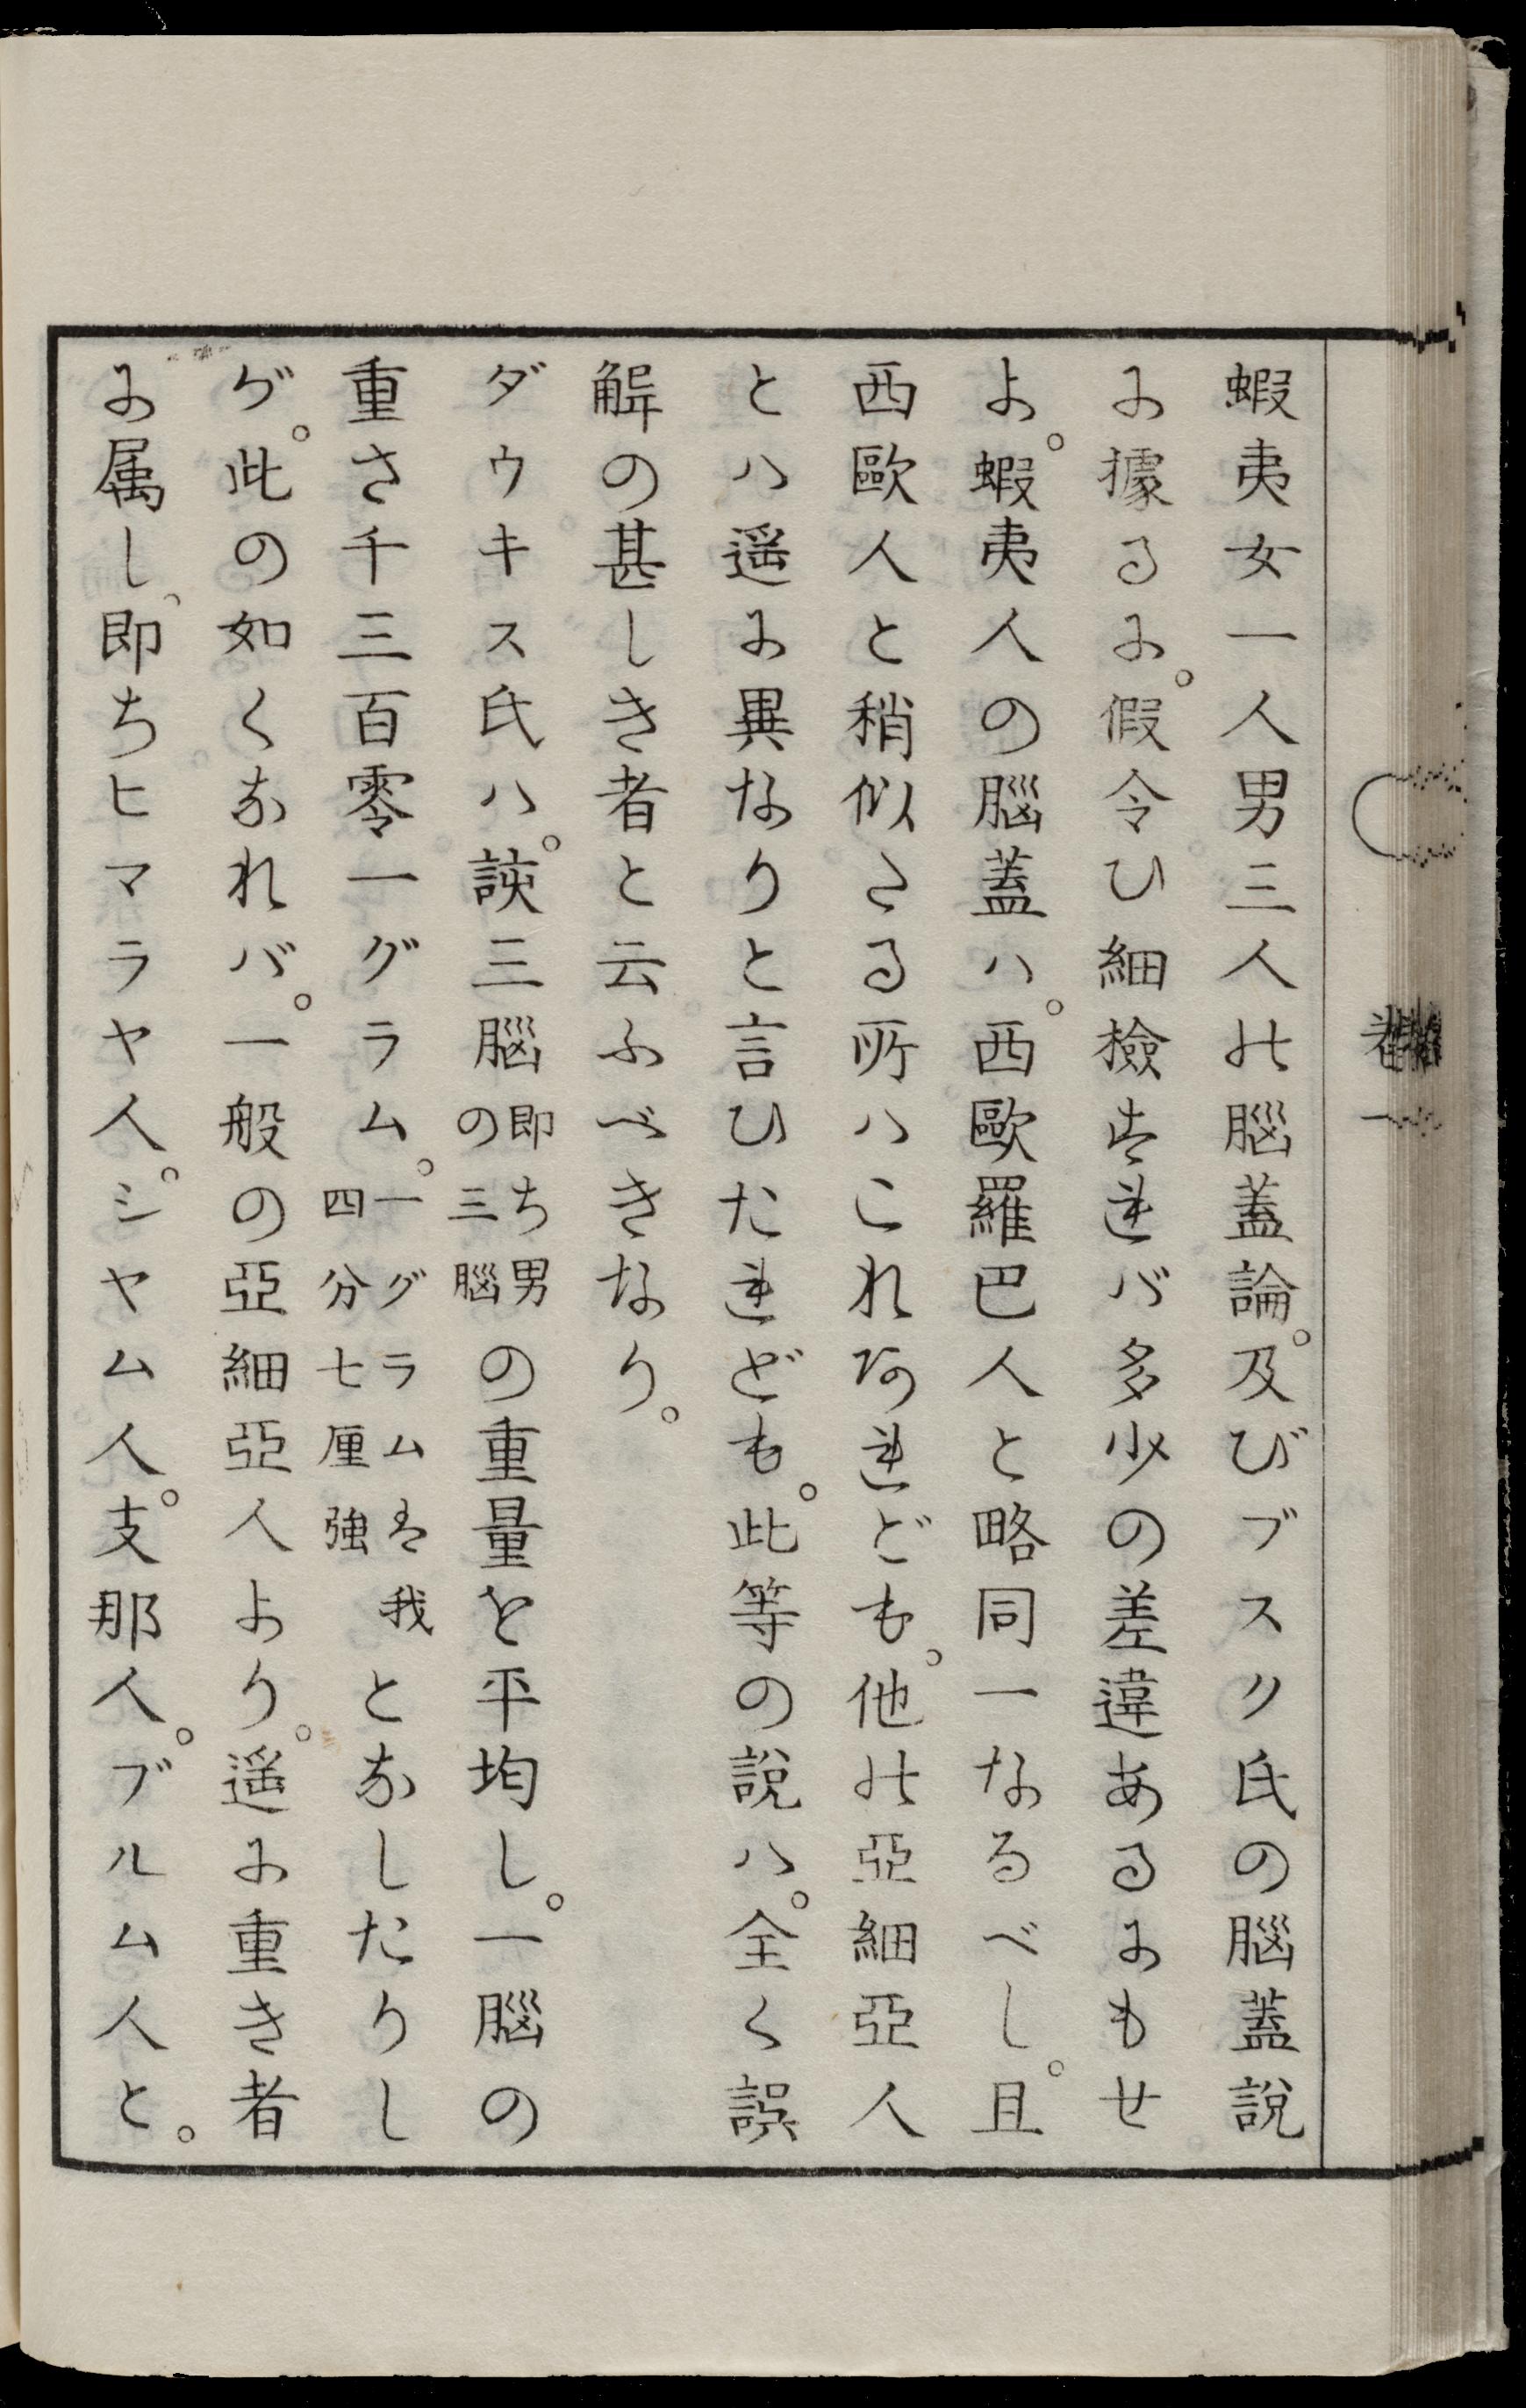 蝦夷女一人男三人の腦蓋論。及びブスク氏の腦蓋說
に據るに。假令ひ細檢すれバ多少の差違あるにもせ
よ。蝦夷人の腦蓋ハ。西歐羅巴人と略同一なるべし。且
西歐人と稍似さる所ハこれあれども。他の亞細亞人
とハ遥に異なりと言ひたれども。此等の說ハ。全く誤
解の甚しき者と云ふべきなり。
ダウキス氏ハ。該三腦即ち男の三腦の重量を平均し。一腦の
重さ千三百零一グラム。一グラムは我四分七厘強となしたりし
が。此の如くなれバ。一般の亞細亞人より。遥に重き者
に属し、即ちヒマラヤ人。シヤム人。支那人。ブルム人と。
卷一